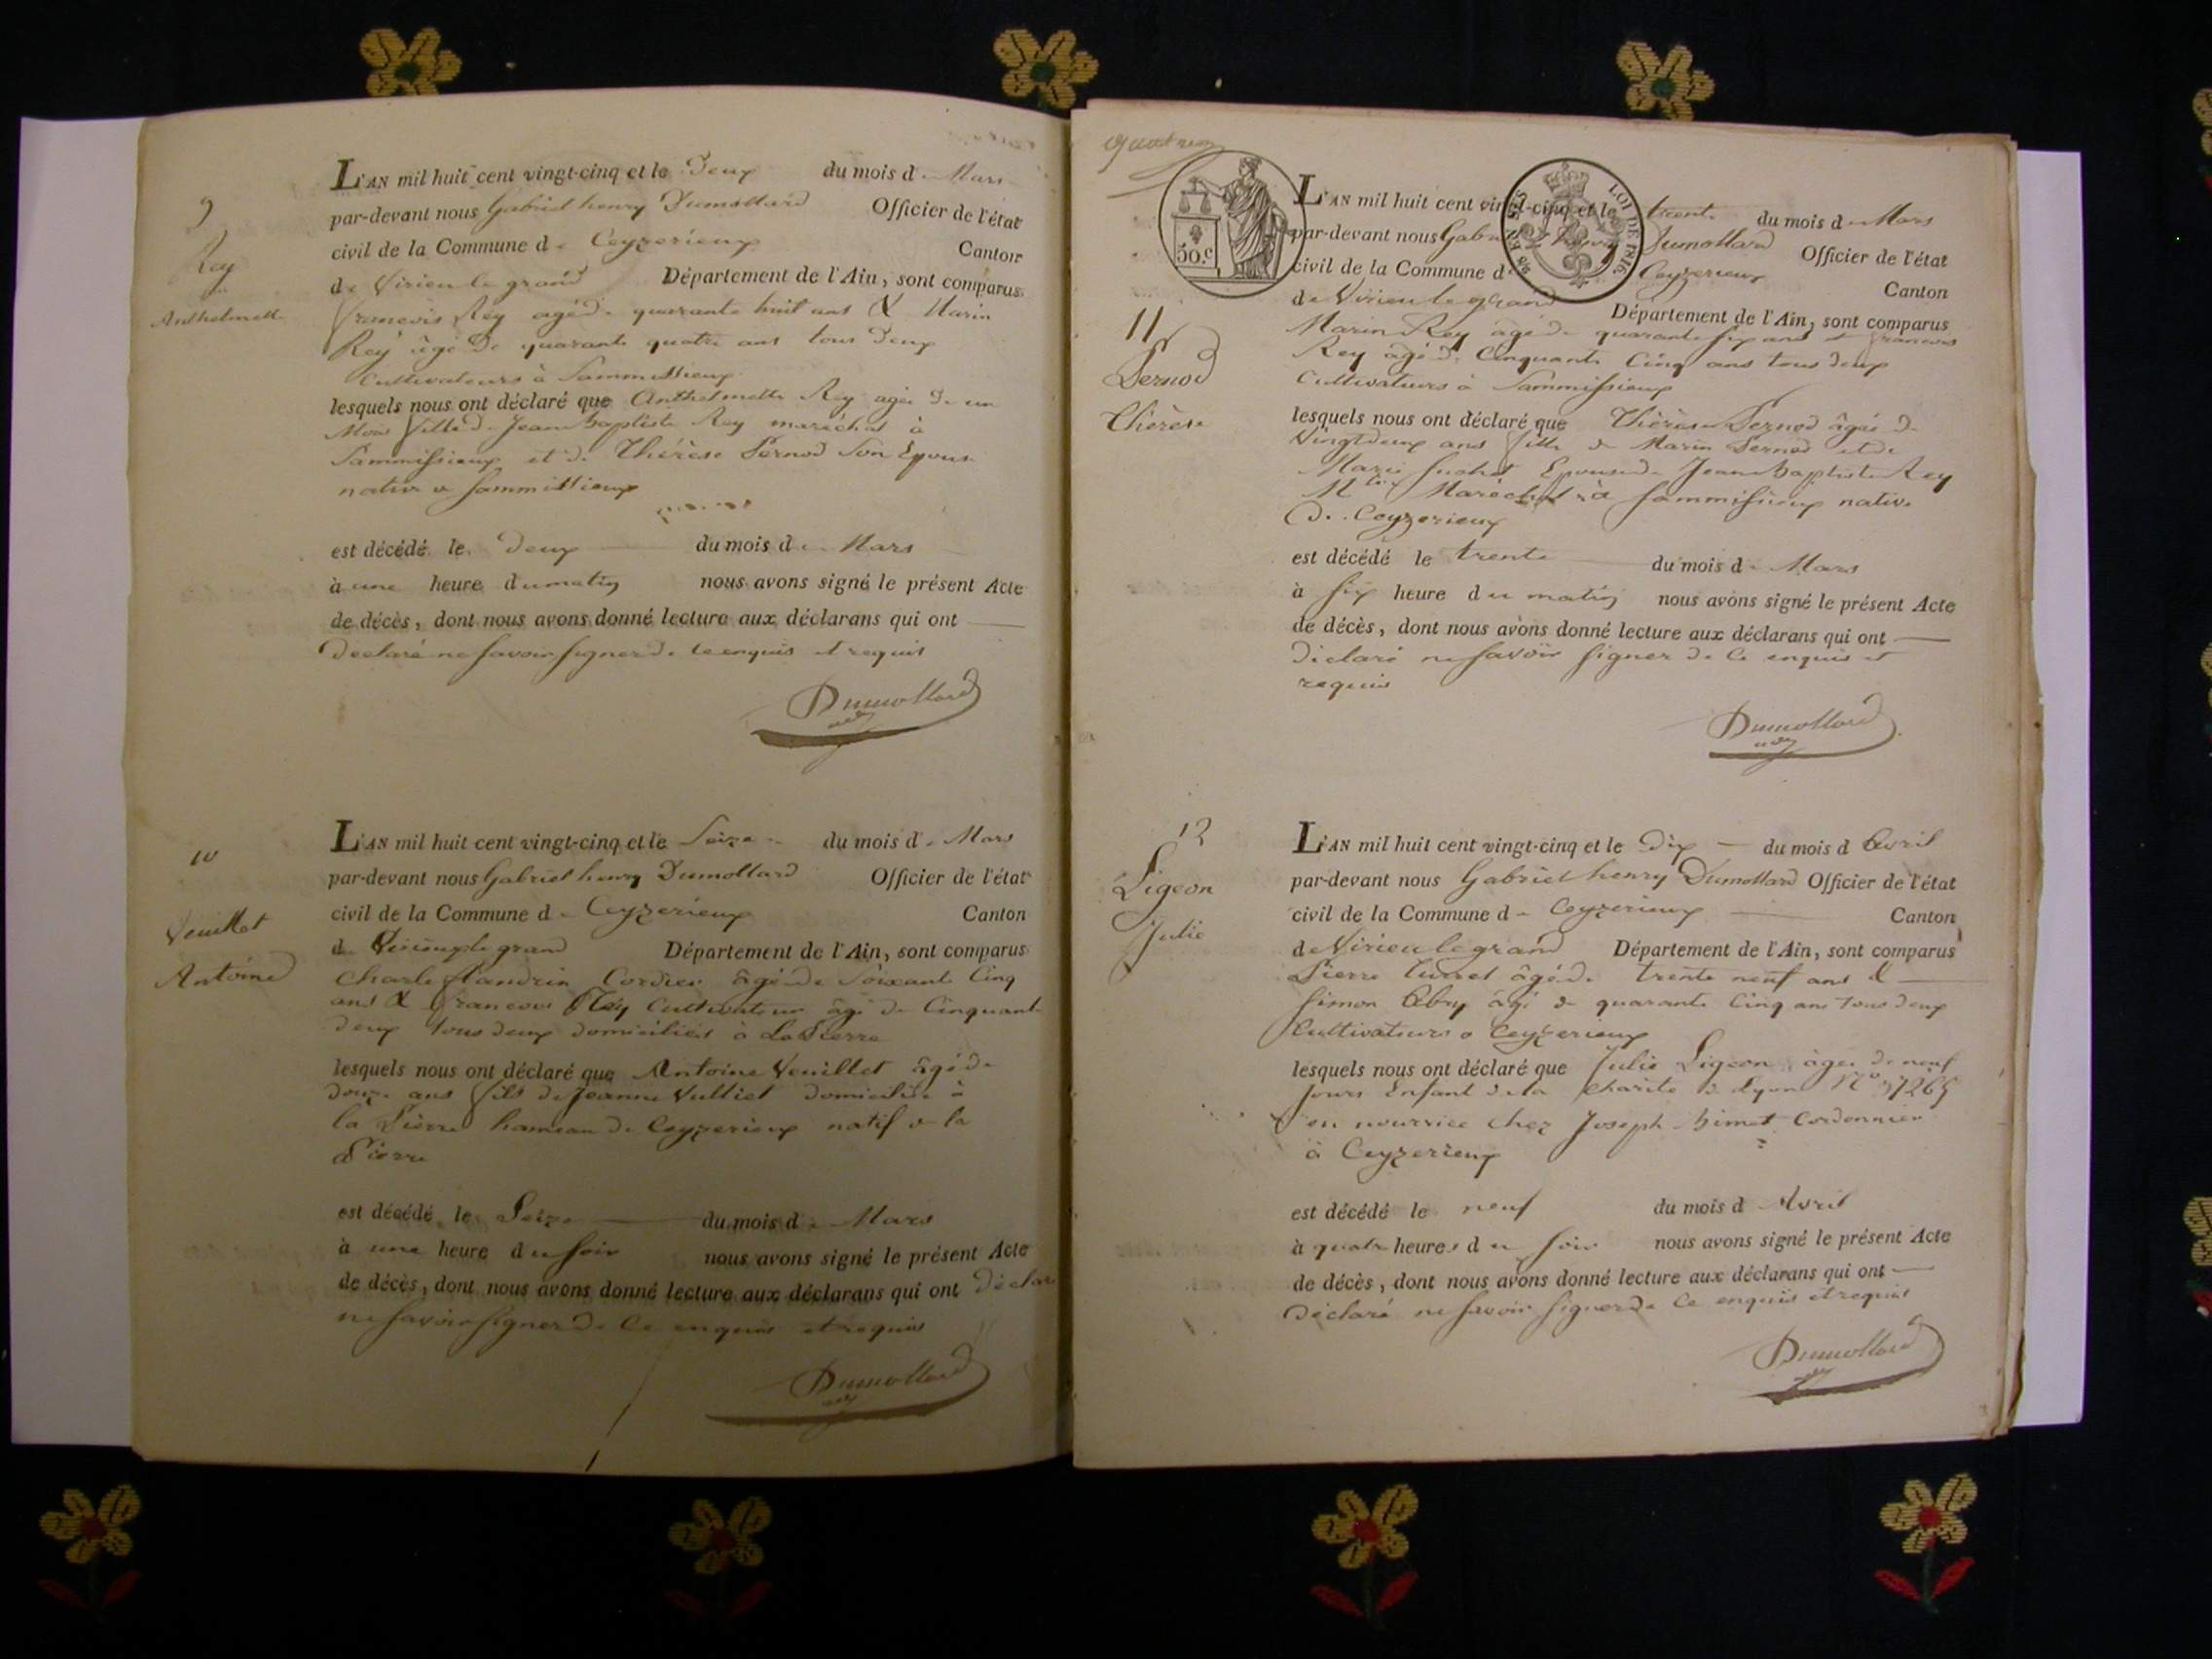 9
Rey
Anthelmette
L'AN mil huit cent vingt-cinq et le Deux du mois de Mars
par-devant nous Gabriel henry Dumollard Officier de l'état
civil de la Commune de Ceyzerieux Canton
de Virieu le grand Département de l'Ain, sont comparus
francois Rey agé de quarante huit ans & Marin
Rey âgé De quarante quatre ans tous Deux
Cultivateurs à Sammissieux
lesquels nous ont déclaré que Anthelmette Rey agée De un
Mois fille de Jean Baptiste Rey maréchal à
Sammissieux et de Thérèse Pernod Son Epouse
native a Sammissieux
est décédé le Deux du mois de Mars
à une heure du matin nous avons signé le présent Acte
de décès, dont nous avons donné lecture aux déclarans qui ont
declaré ne savoir signer de ce enquis et requis
Dumollard
10
Veuillet
Antoine
L'AN mil huit cent vingt-cinq et le Seize du mois de Mars
par-devant nous Gabriel henry Dumollard Officier de l'état
civil de la Commune de Ceyzerieux Canton
de Virieux le grand Département de l'Ain, sont comparus
Charle flandrin Cordier âgé de Soixante Cinq
ans & francois Rey Cultivateur âgé de Cinquante
deux tous deux domiciliés à La Pierre
lesquels nous ont déclaré que Antoine Veuillet âgé de
douze ans fils de Jeanne Vulliet domiciliée à
la Pierre hameau de Ceyzerieux natif a la
Pierre
est décédé le Seize du mois de Mars
à une heure du soir nous avons signé le présent Acte
de décès, dont nous avons donné lecture aux déclarans qui ont déclaré
ne savoir signer De Ce enquis et requis
Dumollard
50.c
LOI DE 1816
11
Pernod
Thérèse
L'AN mil huit cent vingt-cinq et le trente du mois de Mars
par-devant nous Gabriel henry Dumollard Officier de l'état
civil de la Commune de Ceyzerieux
Canton
de Virieu le grand Département de l'Ain, sont comparus
Marin Rey âgé de quarante six ans et francois
Rey âgé de Cinquante Cinq ans tous deux
Cultivateurs à Sammissieux
lesquels nous ont déclaré que Thérèse Pernod âgée de
Vingt deux ans fille de Marin Pernod et de
Marie Epouse de Jean Baptiste Rey
Maréchal à Sammissieux native
De Ceyzerieux
est décédé le trente du mois de Mars
à six heure du matin nous avons signé le présent Acte
de décès, dont nous avons donné lecture aux déclarans qui ont
Déclaré ne savoir signer de Ce enquis et
requis
Dumollard
12
Pigeon
Julie
L'AN mil huit cent vingt-cinq et le Dix du mois d Avril
par-devant nous Gabriel henry Dumollard Officier de l'état
civil de la Commune de Ceyzerieux Canton
de Virieu le grand Département de l'Ain, sont comparus
Pierre âgé de trente neuf ans &
Simon Abry âgé de quarante Cinq ans tous deux
Cultivateurs a Ceyzerieux
lesquels nous ont déclaré que Julie Pigeon âgée de neuf
jours Enfant de la Charité de Lyon
en nourrice chez Joseph Cordonnier
à Ceyzerieux
est décédé le neuf du mois d Avril
à quatre heures du soir nous avons signé le présent Acte
de décès, dont nous avons donné lecture aux déclarans qui ont
Déclaré ne savoir signer de Ce enquis et requis
Dumollard